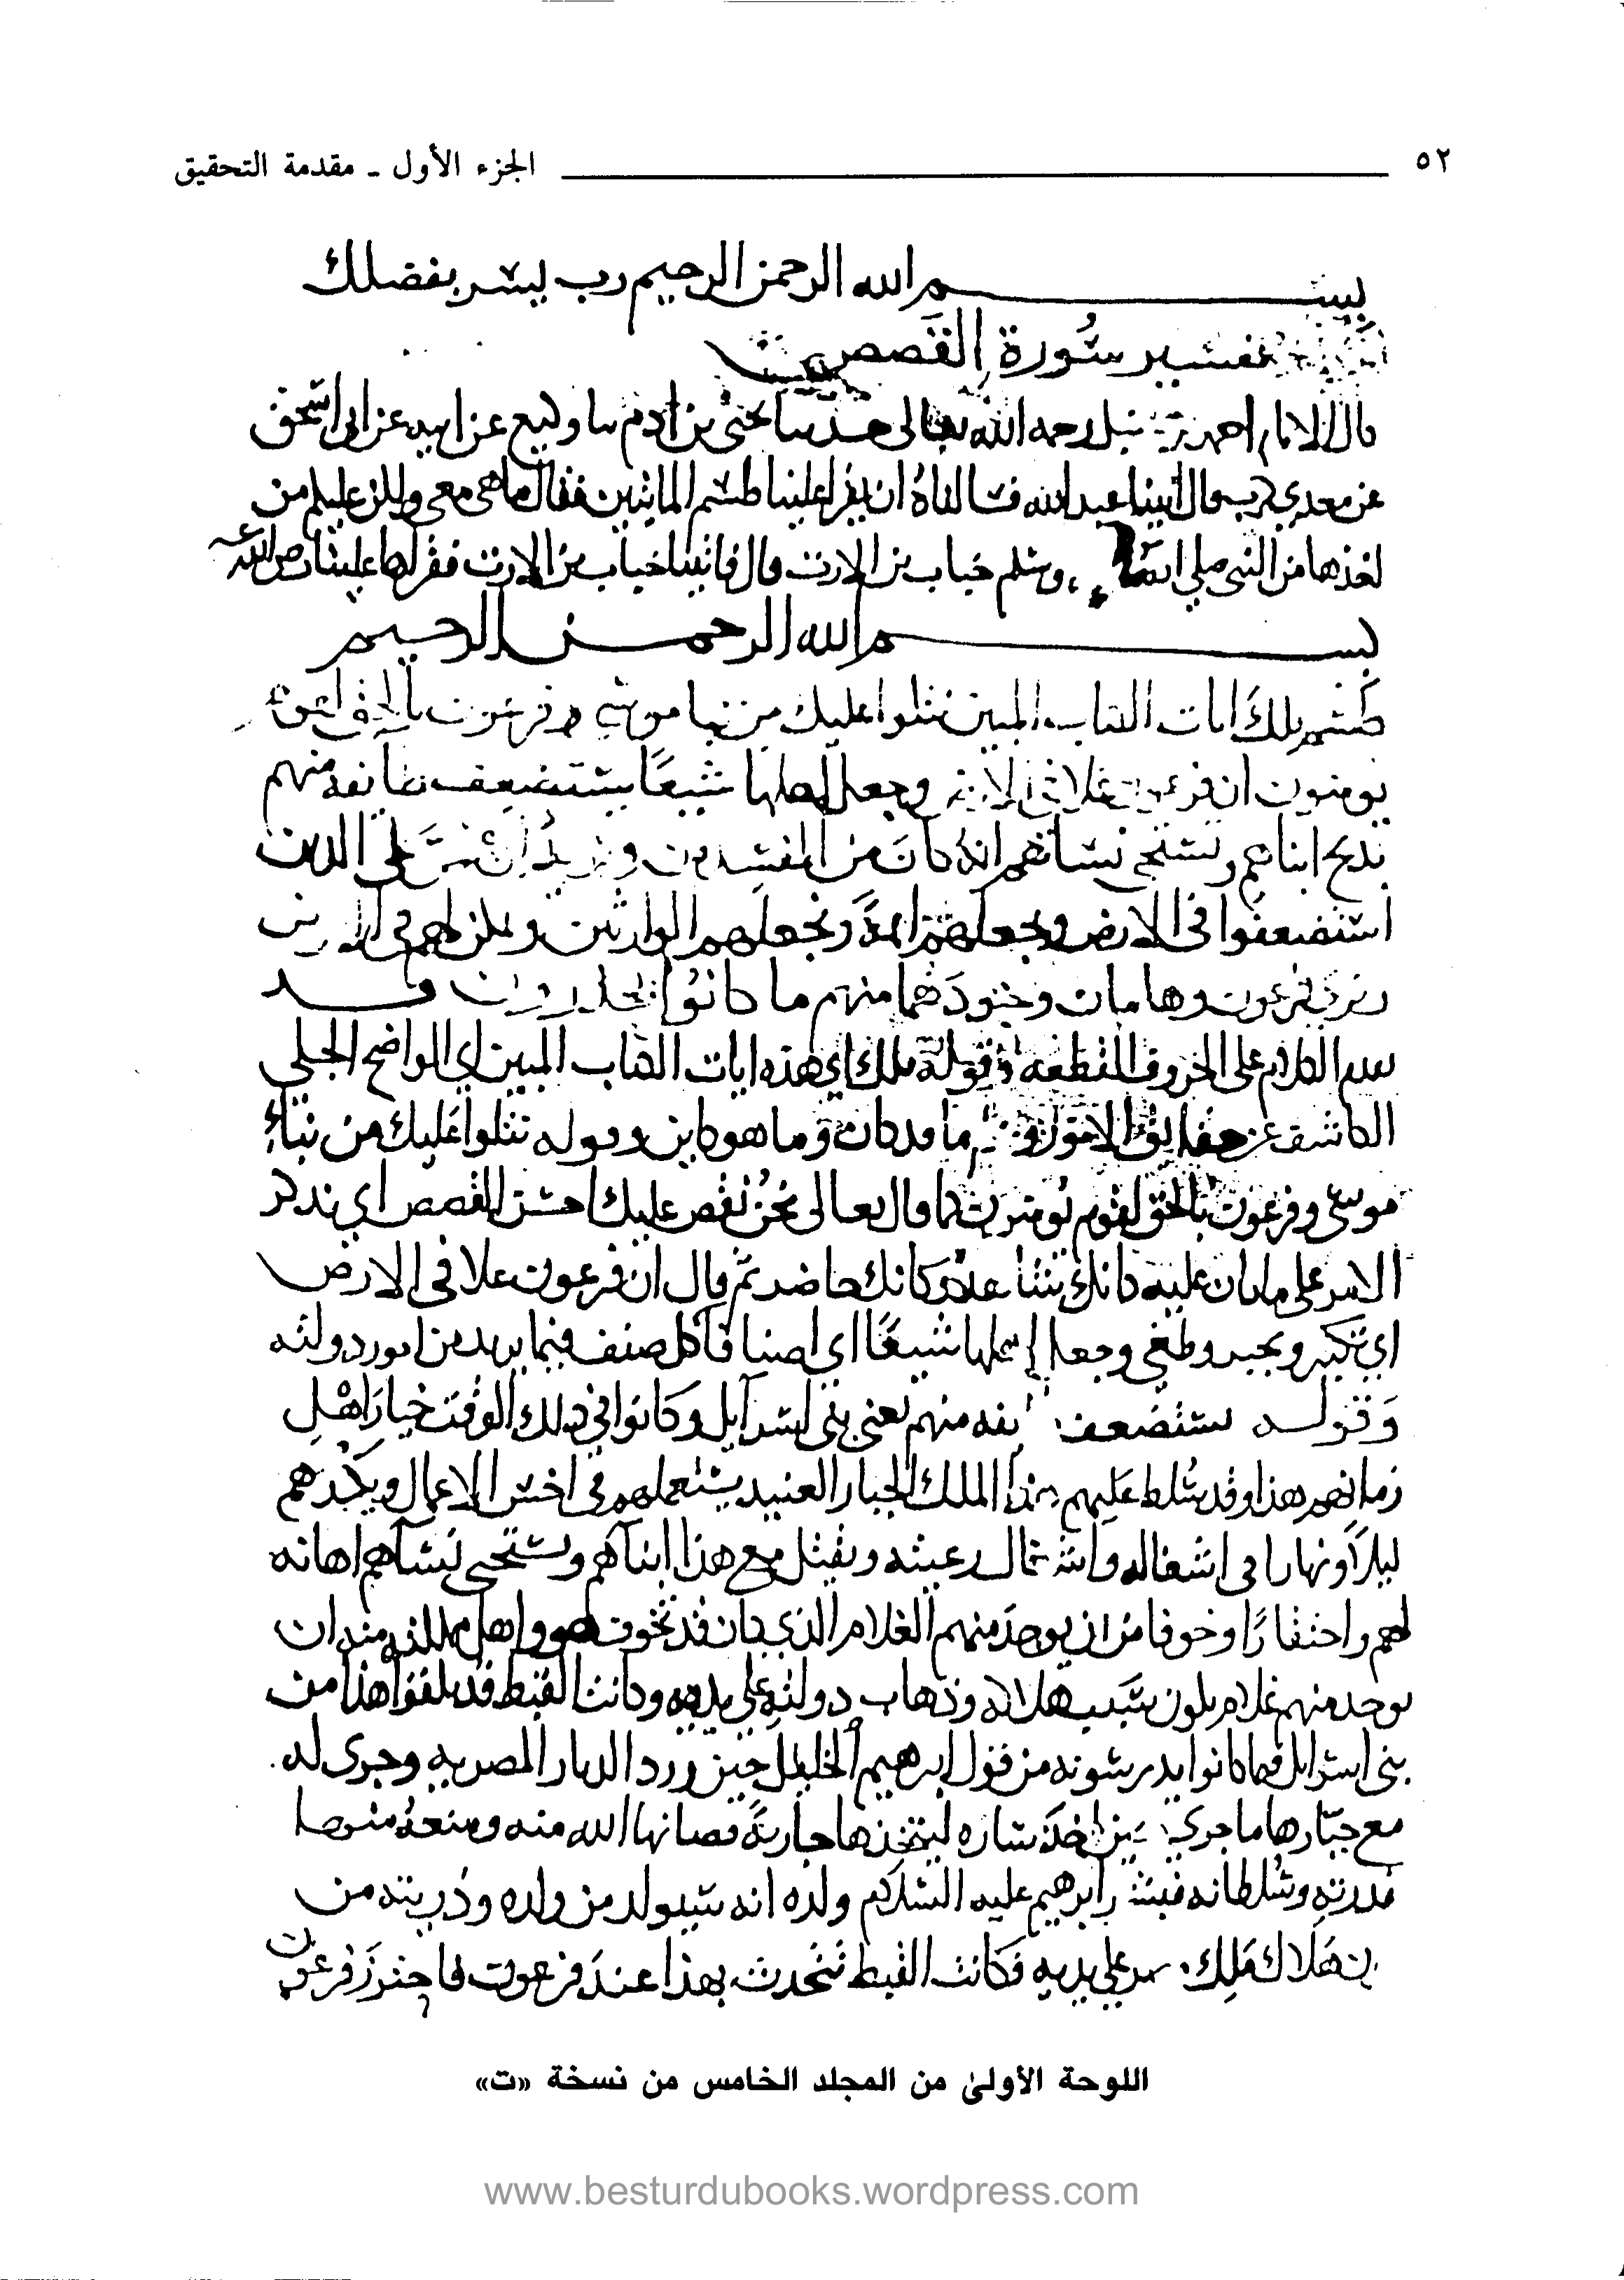 ٥٢ الجزء الأول ـ مقدمة التحقيق
بسم الله الرحمن الرحيم رب يسر بفضلك
تفسير سورة القصص
قال الامام احمد بن حنبل رحمه الله تعالى حدثنا يحيى بن ادم سا وكيع عن ابيه عن ابى اسحق
عن معدي كرب قال اتينا عبد الله فسالناه ان يقرا علينا طسم المايتين فقال ما هى معي ولكن عليكم من
اخذها من النبي صلى الله وسلم خباب بن الارت قال فاتينا خباب بن الارت فقراها علينا رضى الله عنه
بسم الله الرحمن الرحيم
طسم تلك ايات الكتاب المبين نتلوا عليك من نبا موسى وفرعون بالحق لقوم
يومنون ان فرعون علا في الارض وجعل اهلها شيعًا يستضعف طايفه منهم
يذبح ابناهم ويستحي نساهم انه كان من المفسدين ونريد ان نمن على الذين
استضعفوا في الارض ونجعلهم ايمةً ونجعلهم الوارثين ونمكن لهم في الارض
ونري فرعون وهامان وجنودهما منهم ما كانوا يحذرون قد
تقدم الكلام على الحروف المقطعه وقوله تلك اي هذه ايات الكتاب المبين اي الواضح الجلي
الكاشف عن حقايق الامور وعلم ما قد كان وما هو كاين وقوله نتلوا عليك من نباء
موسى وفرعون بالحق لقوم يومنون كما قال تعالى نحن نقص عليك احسن القصص اي نذكر
الامر على ما كان عليه كانك تشاهد وكانك حاضر ثم قال ان فرعون علا في الارض
اي تكبر وتجبر وطغى وجعل اهلها شيعًا اي اصنافا كل صنف فيما يريد من امور دولته
وقوله يستضعف طايفه منهم يعني بني اسرآيل وكانوا في ذلك الوقت خيار اهل
زمانهم هذا وقد سلط عليهم هذا الملك الجبار العنيد يستعملهم في اخس الاعمال ويكدهم
ليلاً ونهارا في اشغاله واشغال رعيته ويقتل مع هذا ابنآهم ويستحيى نسآهم اهانه
لهم واحتقارًا وخوفا من ان يوجد منهم الغلام الذي كان قد تخوف هو واهل مملكته منه ان
يوجد منهم غلام يكون سبب هلاكه وذهاب دولته على يديه وكانت القبط قد تلقوا هذا من
بنى اسرايل فيما كانوا يدرسونه من قول ابرهيم الخليل حين ورد الديار المصريه وجرى له
مع جبارها ما جري حين اخذ ساره ليتخذها جاريةً فصانها الله منه ومنعه منها
بقدرته وسلطانه فبشر ابرهيم عليه السلام ولده انه سيولد من ولده وذريته من
يكون هلاك ملك مصر على يديه فكانت القبط تتحدث بهذا عند فرعون فاحترز فرعون
اللوحة الأولىٰ من المجلد الخامس من نسخة «ت»
www.besturdubooks.wordpress.com